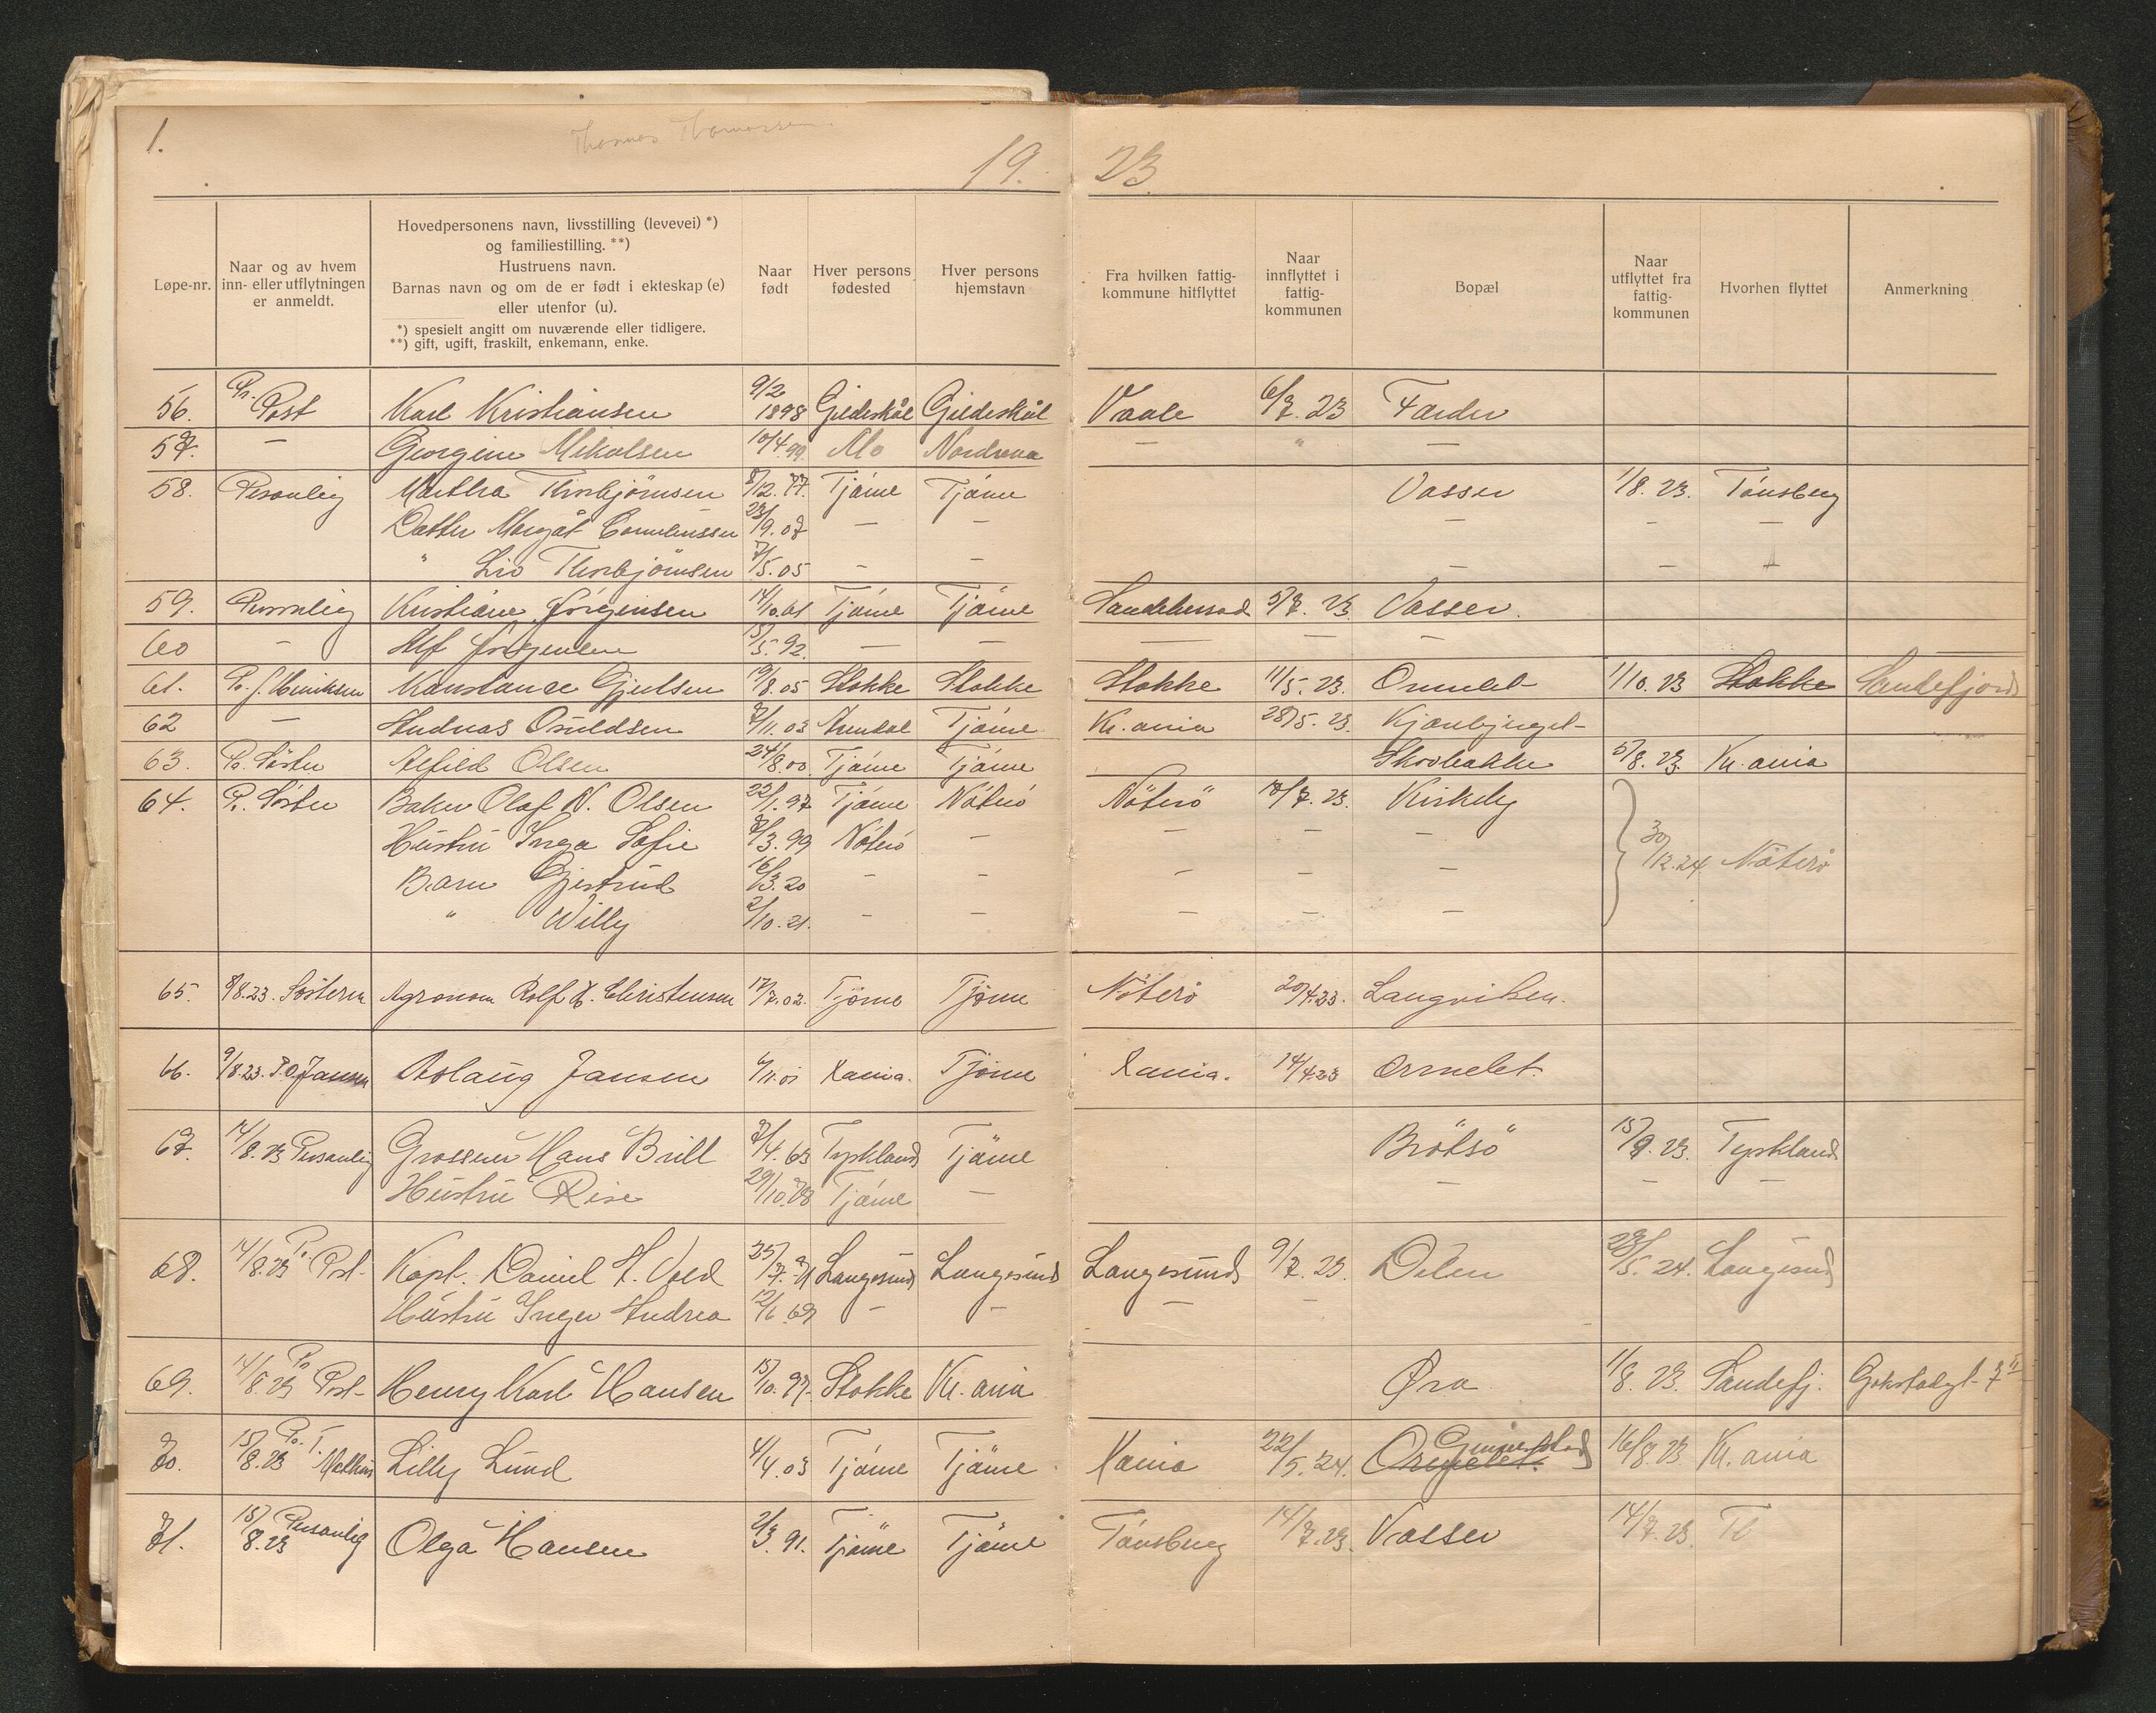 1.
Thomas Thomassen
19. 23.
Løpe-nr.
Naar og av hvem inn- eller utflytningen er anmeldt.
Hovedpersonens navn, livsstilling (levevei) *)
og familiestilling. **)
Hustruens navn.
Barnas navn og om de er født i ekteskap (e)
eller utenfor (u).
*) spesielt angitt om nuværende eller tidligere.
**) gift, ugift, fraskilt, enkemann, enke.
Naar født
Hver persons fødested
Hver persons hjemstavn
Fra hvilken fattig-kommune hitflyttet
Naar innflyttet i fattig-kommunen
Bopæl
Naar utflyttet fra fattig-kommunen
Hvorhen flyttet
Anmerkning
56. Pr. Post Karl Kristiansen 9/2 1898 Gildeskål Gildeskål Vaale 6/7. 23 Færder
57. — Georgine Mikalsen 10/4 99 Mo Nordrana — " —
58. Personlig Martha Thorbjörnsen 8/12. 77. Tjöme Tjöme Vasser 1/8. 23. Tönsberg
Datter Margåt Corneliussen 23/9. 07 — — — — —
" Liv Thorbjörnsen 7/5. 05 — — — — —
59. Personlig Kristiane Jörgensen 14/10. 61 Tjöme Tjöme Sandeherred 5/7. 23 Vasser.
60 — Alf Jörgensen 15/5. 92. — — — — —
61. Pr. J. Henriksen Konstanse Gjertsen 19/8. 05 Stokke Stokke Stokke 11/5. 23. Ormelet 1/10. 23 Stokke Sandefjord
62 — Andreas Osuldsen 7/11. 03 Arendal Tjöme Kr.ania 28/5. 23.
63. Pr. Söster Alfild Olsen 24/8. 00. Tjöme Tjöme Skovbakke 5/8. 23. Kr.ania
64. Pr. Söster Baker Olaf N. Olsen 22/1. 97 Tjöme Nöterö Nöterö 10/7. 23. Kirkeby
Hustru Inga Sofie 7/3. 99 Nöterö — — — — 30/12. 24 Nöterö
Barn Gjertrud 16/3. 20 — — — — —
" Willy 2/10. 21. — — — — —
65. 8/8.23. Søsteren Agronom Rolf H. Christensen 17/7. 02. Tjöme Tjöme Nöterö 20/4.23. Langviken.
66. 9/8.23. P.O. Jansen Aslaug Jansen 6/11. 01 Kania. Tjöme Kania. 14/4.23 Ormelet.
67. 14/8. 23 Personlig Grosserer Hans Brill 7/4. 63 Tyskland Tjöme Brötsö 15/9. 23. Tyskland
Hustru Rise 29/10. 78 Tjöme — — — —
68. 14/8. 23 Pr. Post Kapt. Daniel H. Vold 25/7. 71 Langesund Langesund Langesund 9/7. 23. Delen 28/5. 24. Langesund
Hustru Inger Andrea 12/1. 69 — — — — —
69. 14/8. 23 Pr Post Henry Karl Hansen 15/10. 97. Stokke Kr.ania Øra 11/8. 23. Sandefj. Gokstadgt. 7 II
70. 15/8. 23 Pr. T. Lilly Lund 4/4. 03 Tjöme Tjöme Kania 22/5. 24. Ormelet. Grimestad 16/8. 23 Kr.ania
71. 15/8. 23 Personlig Olga Hansen 2/3. 91. Tjöme Tjöme Tönsberg 14/7. 23. Vasser 14/7. 23. Tb